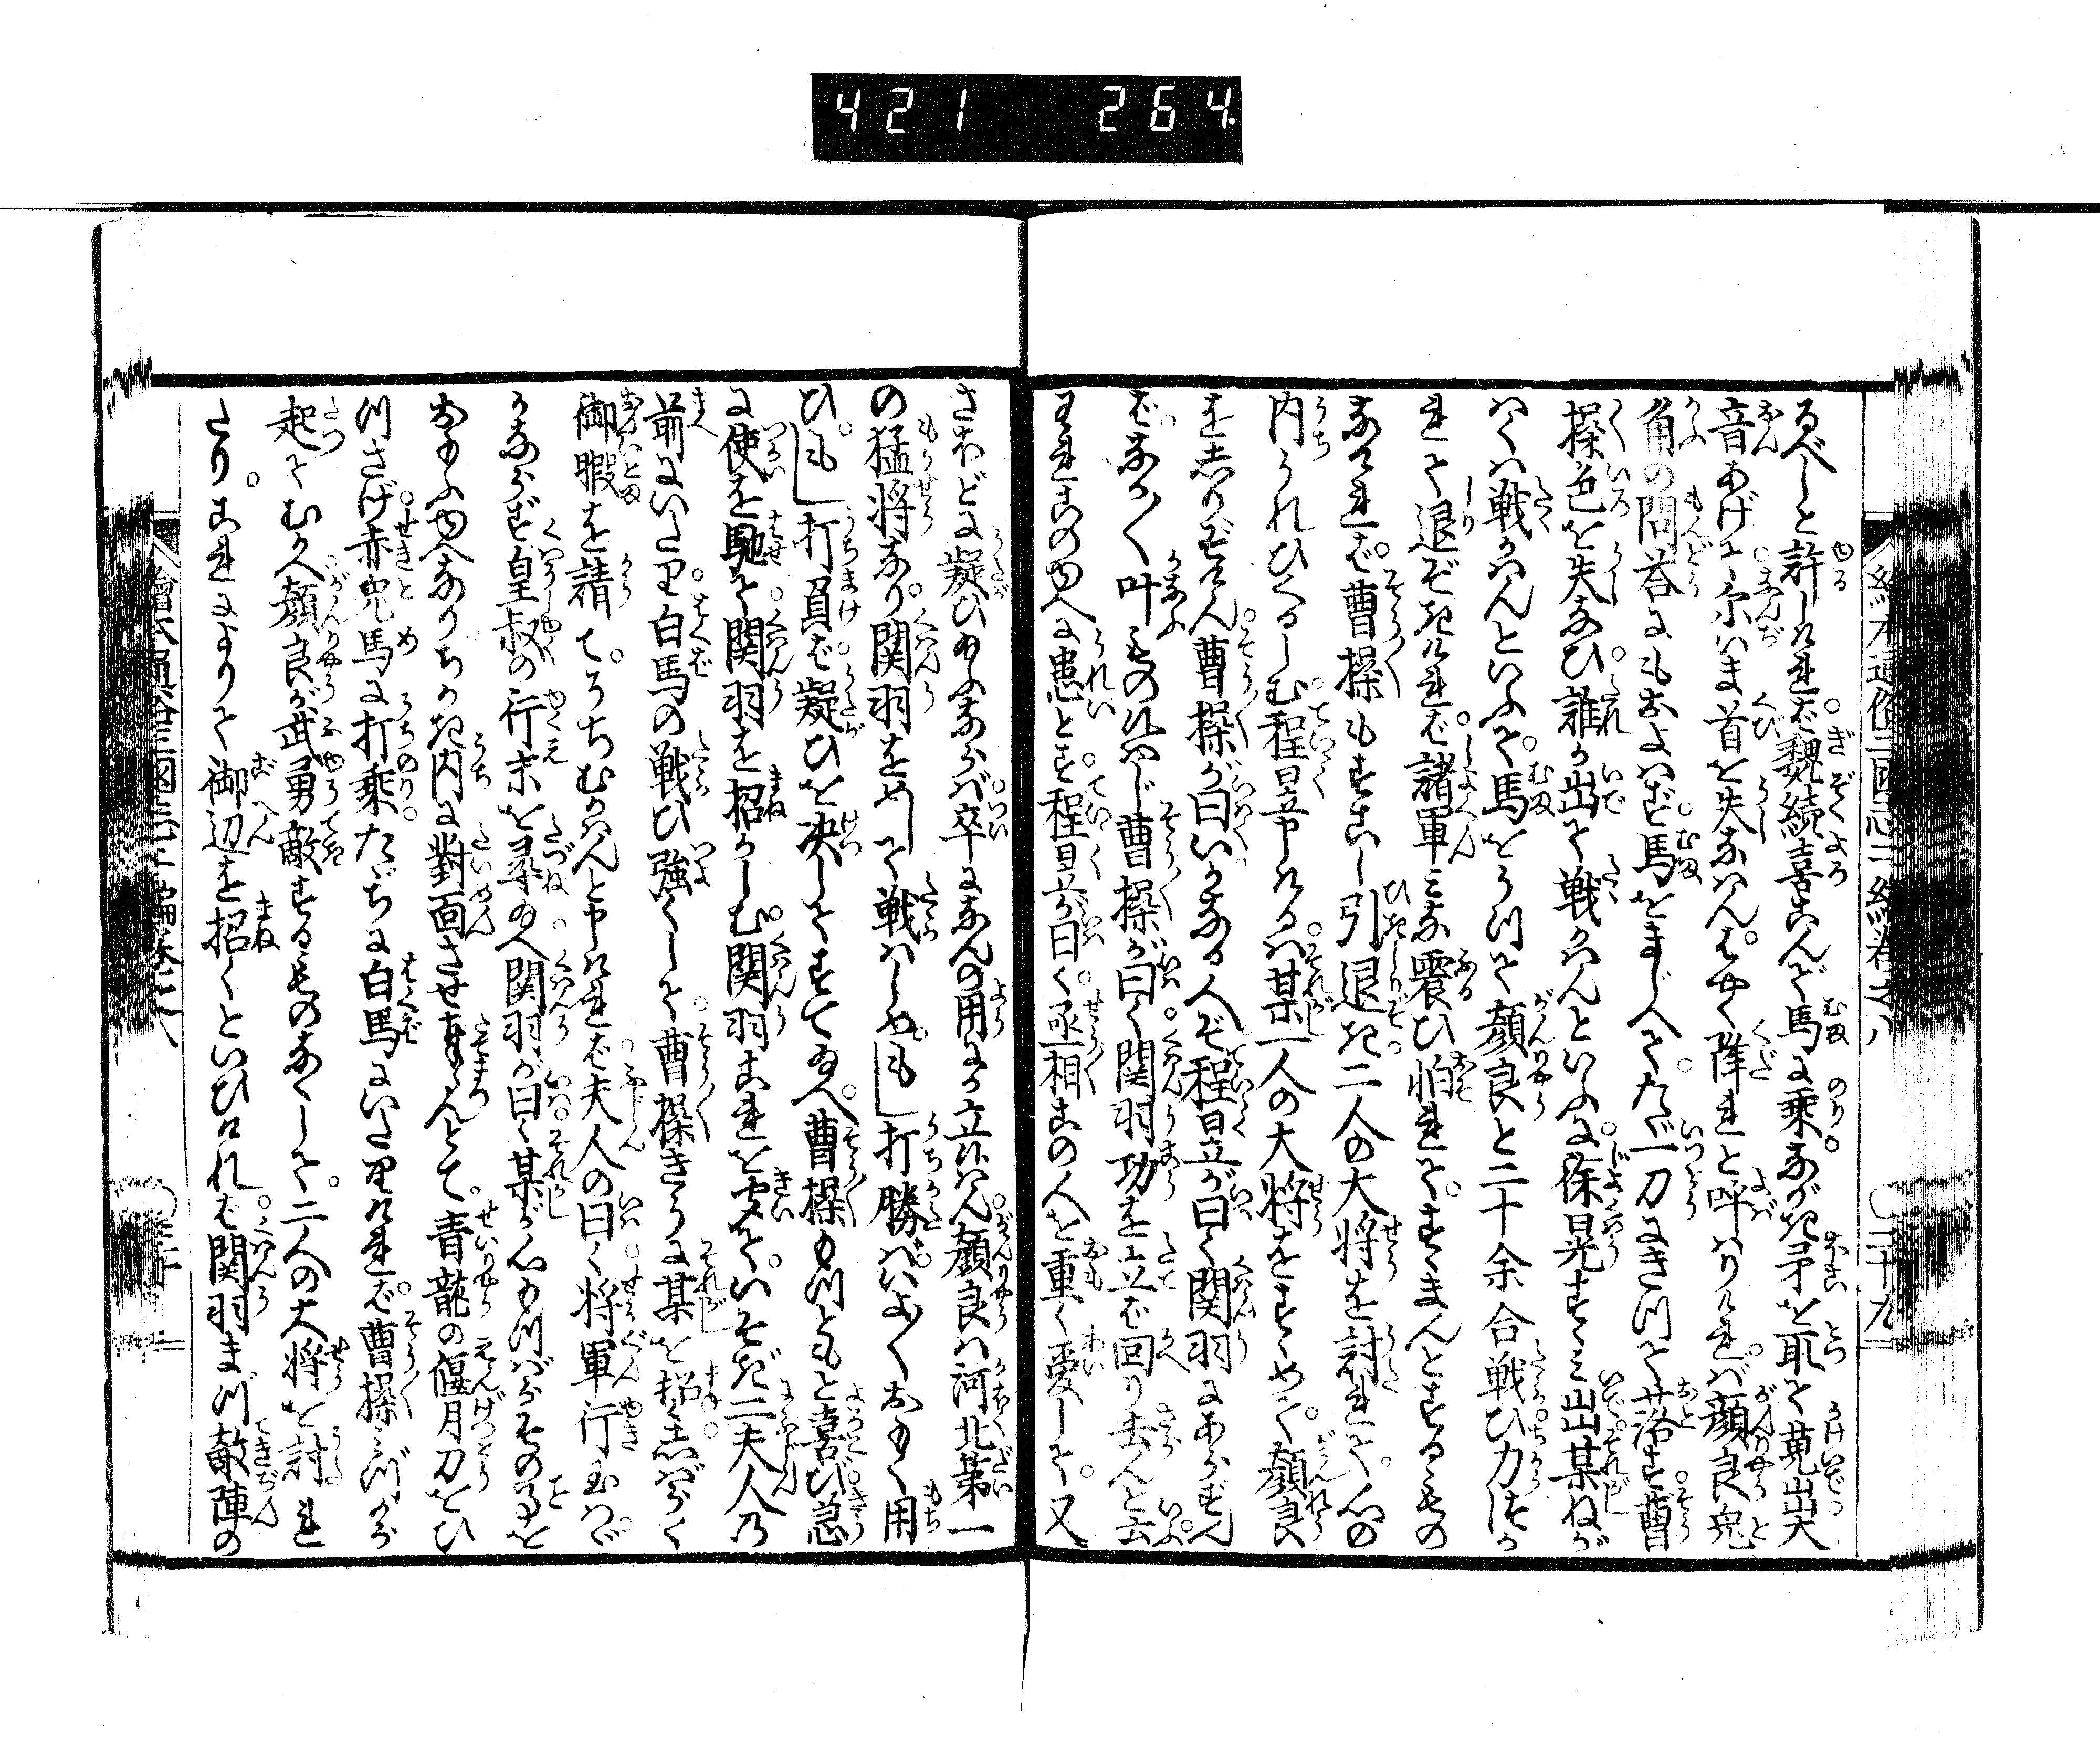 421 264
るべしと許しければ魏続喜こんで馬に乗ながき矛を取て莵出大
音あげて尓いま首を失なはんはやく降れと呼はりければ顔良兜
角の問答にもおよはず馬をまじへてただ一刀にきつて落す曹
操色を失なひ誰か出て戦かはんといふに徐晃すゝみ出某ねが
はくは戦かはんといふて馬をうつて顔良と二十余合戦ひ力つか
れて退ぞきければ諸軍みな震ひ怕れてすゝまんとするもの
なければ曹操もすこし引退き二人の大将を討れて心の
内うれひくるしむ程昱申けるは某一人の大将をすゝめて顔良
をしりぞけん曹操が曰いかなる人ぞ程昱が曰く関羽にあらずん
ばかなく叶ものけじ曹操が曰く関羽功を立ば回り去んと云
われこのゆへに患とす程昱が曰く丞相この人を重く愛して又
さほどに疑ひ給ふならバ卒になんの用にか立けん顔良ハ河北第一
の猛将なり関羽をめして戦はしめもし打勝バいよ〳〵おもく用
ひもし打負ば疑ひを决してすて給へ曹操もつともと喜び急
に使を馳て関羽を招かしむ関羽これを聞ていそぎ二夫人乃
前にいたり白馬の戦ひ強くして曹操きうに某を招く志ばらく
御暇を請てうちむかはんと申ければ夫人の曰く将軍行玉はゞ
かならず皇叔の行末を尋給へ関羽が曰く某が心もつはらそのことを
おもふゆへなりちかき内に對面させ奉らんとて青龍の偃月刀をひ
つさげ赤兎馬に打乗たゞちに白馬にいたりければ曹操みづから
起てむかへ顔良が武勇敵するものなくして二人の大将を討れ
たりこれによりて御辺を招くといひければ関羽まづ敵陣の